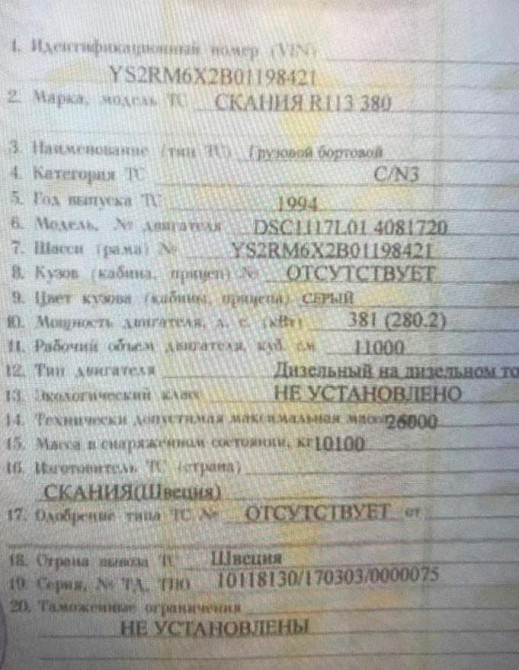 1. Идентификационный номер (VIN)
YS2RM6X2B01198421
2. Марка, модель ТС СКАНИЯ R113 380
3. Наименование (тип ТС) Грузовой бортовой
4. Категория ТС C/N3
5. Год выпуска ТС 1994
6. Модель, № двигателя DSC1117L01 4081720
7. Шасси (рама) № YS2RM6X2B01198421
8. Кузов (кабина, прицеп) № ОТСУТСТВУЕТ
9. Цвет кузова (кабины, прицепа) СЕРЫЙ
10. Мощность двигателя, л. с. (кВт) 381 (280.2)
11. Рабочий объем двигателя, куб. см 11000
12. Тип двигателя Дизельный на дизельном то
13. Экологический класс НЕ УСТАНОВЛЕНО
14. Технически допустимая максимальная масса 26000
15. Масса в снаряженном состоянии, кг 10100
16. Изготовитель ТС (страна)
СКАНИЯ(Швеция)
17. Одобрение типа ТС № ОТСУТСТВУЕТ от
18. Страна вывоза ТС Швеция
19. Серия, № ТД, ТПО 10118130/170303/0000075
20. Таможенные ограничения
НЕ УСТАНОВЛЕНЫ